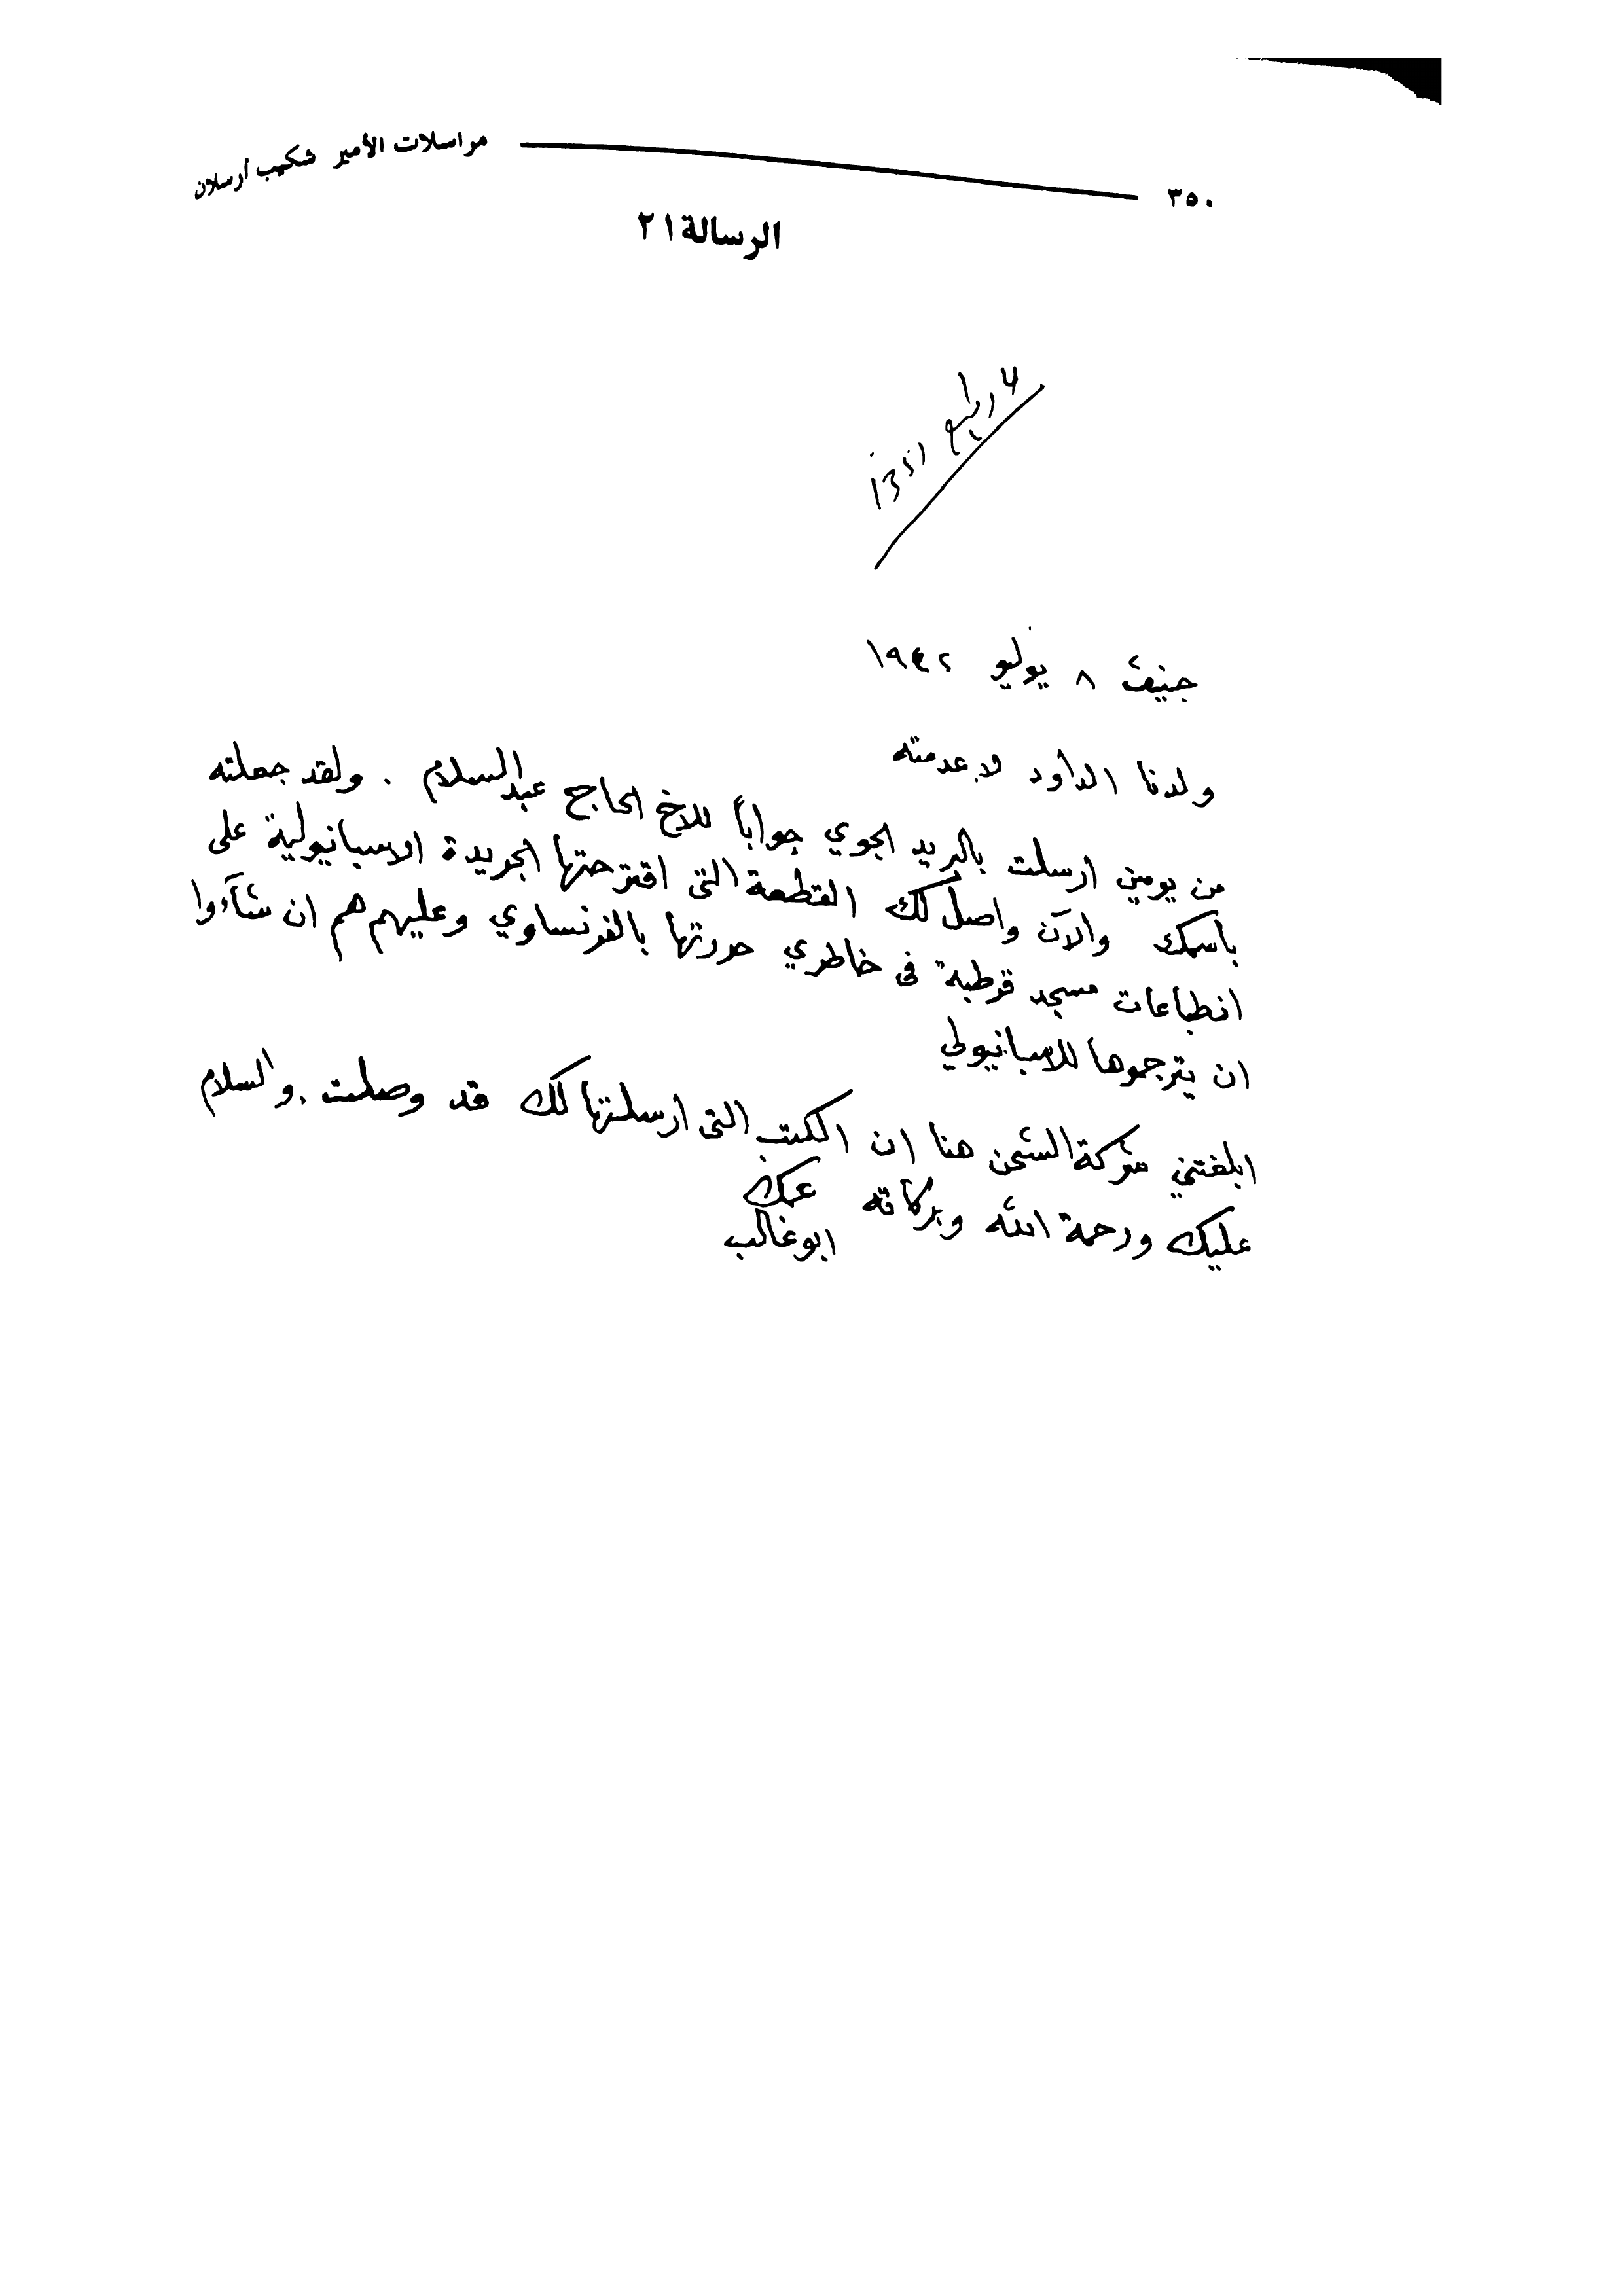 ٣٥٠ مراسلات الأمير شكيب أرسلان
الرسالة ٢١
جنيف ٨ يوليو ١٩٤٢
ولدنا الداود لا عدمته
من يومين ارسلت بالبريد الجوي جواباً للاخ الحاج عبد السلام . ولقد جعلته
باسمك والآن واصل لك القطعة التى اقترحتها الجريدة الاسبانيولية على
انطباعات مسجد قرطبة فى خاطري حررتها بالفرنساوي وعليهم هم ان شآءوا
ان يترجموها للاسبانيولي
ابلغتني شركة الشحن هنا ان الكتب التى ارسلتها لك قد وصلت . والسلام
عليك ورحمة الله وبركاته عمك
ابو غالب